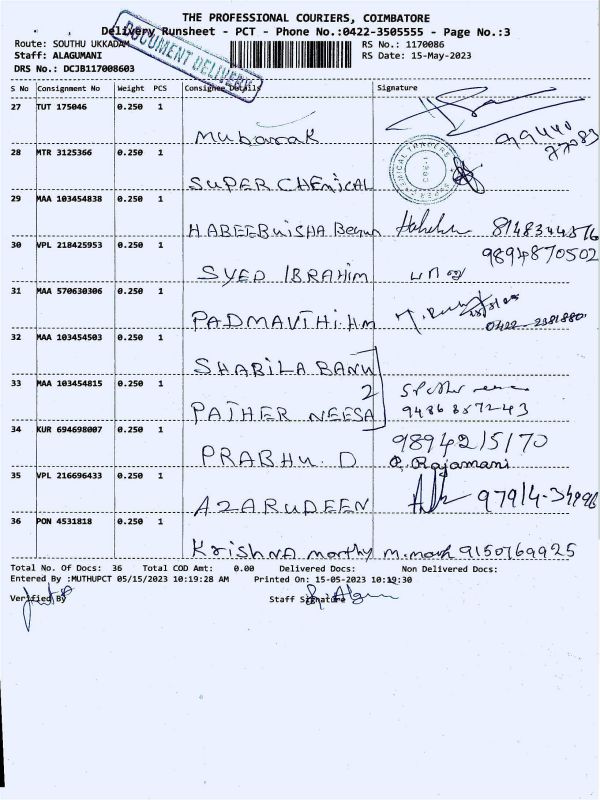 THE PROFESSIONAL COURIERS, COIMBATORE
Delivery Runsheet - PCT - Phone No.:0422-3505555 - Page No.:3
Route: SOUTHU UKKADAM RS No.: 1170086
Staff: ALAGUMANI RS Date: 15-May-2023
DRS No.: DCJB117008603
DOCUMENT DELIVERY
S No Consignment No Weight PCS Consignee Details Signature
27 TUT 175046 0.250 1
Mubarak 99440
77083
28 MTR 3125366 0.250 1
SUPER CHEMICAL
29 MAA 103454838 0.250 1
HABEEBUISHA Begum
30 VPL 218425953 0.250 1 9894870502
SYED IBRAHIM
31 MAA 570630306 0.250 1
PADMAVTHI.HM 0422-2381880
32 MAA 103454503 0.250 1
SHABILA BANU
33 MAA 103454815 0.250 1 2
PATHER NEESA 9486857243
34 KUR 694698007 0.250 1 9894215170
PRABHU. D P. Rajamani
35 VPL 216696433 0.250 1
AZARUDEEN
36 PON 4531818 0.250 1
Krishna morthy 9150769925
Total No. Of Docs: 36 Total COD Amt: 0.00 Delivered Docs: Non Delivered Docs:
Entered By :MUTHUPCT 05/15/2023 10:19:28 AM Printed On: 15-05-2023 10:19:30
Verified By Staff Signature